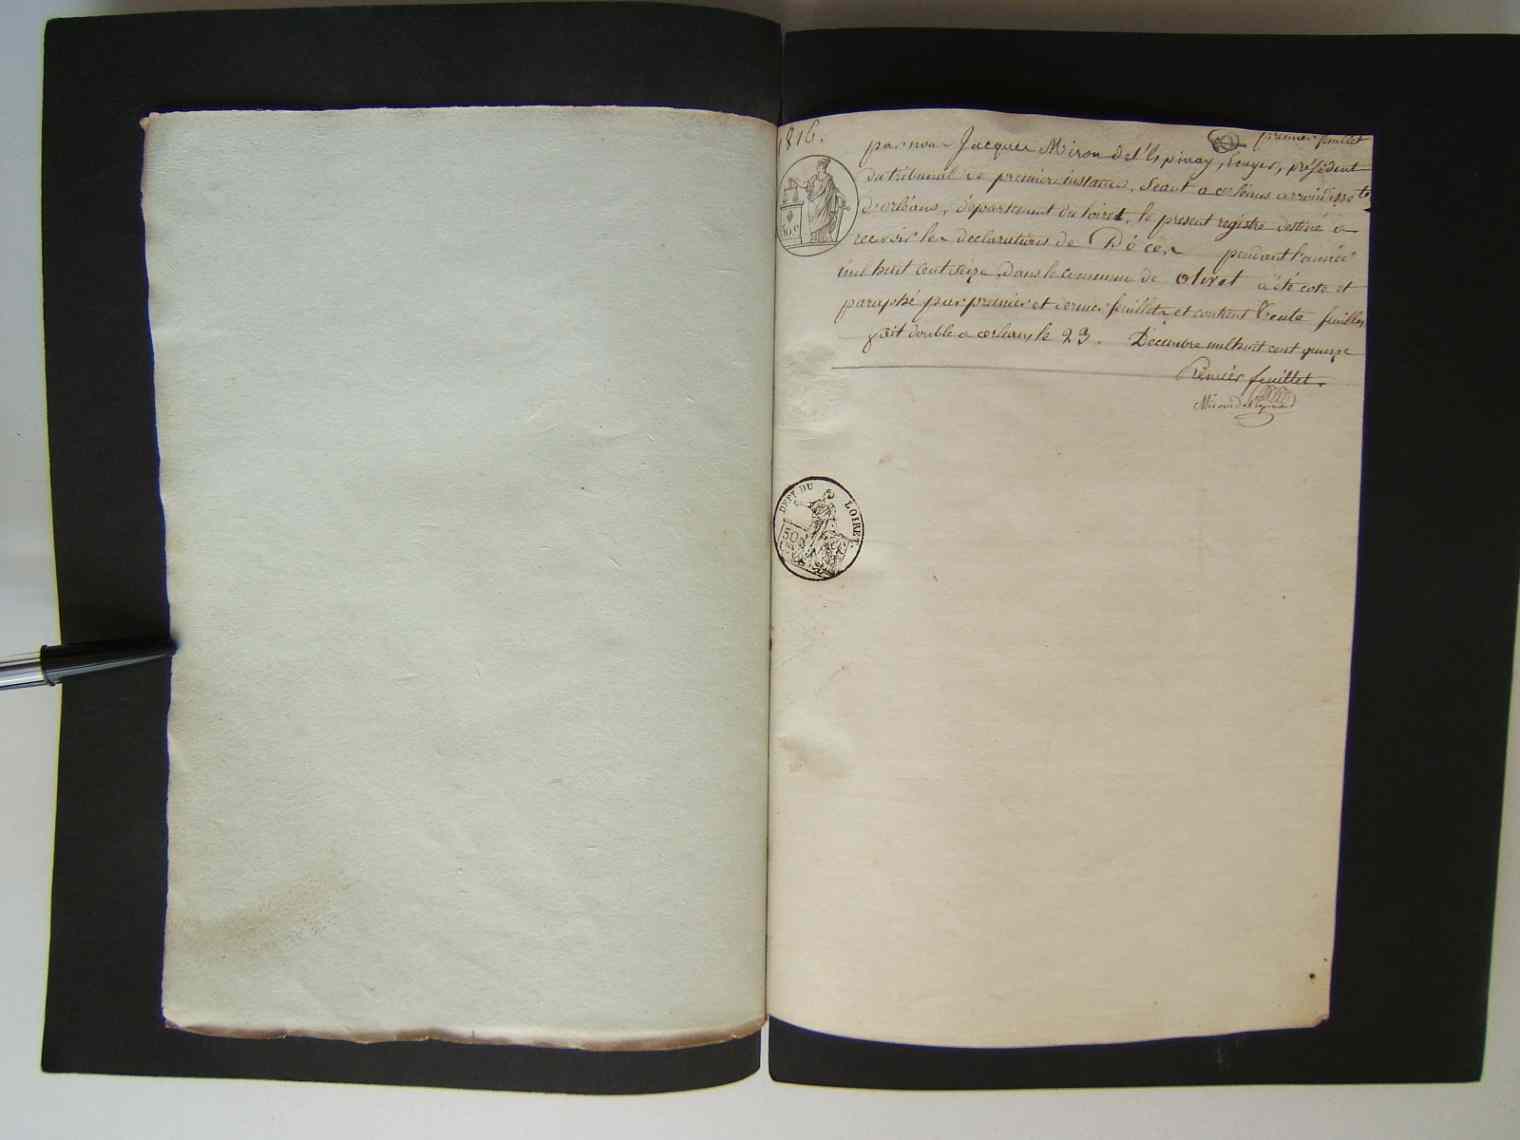 1816.
premier feuillet
par nous Jacques Miron de l'Espinay, Ecuyer, président
du tribunal de premiere instance, Seant a orléans arrondissemt
d'orléans, département du loiret, le present registre destiné a
recevoir les declarations de Décès pendant l'année
mil huit cent seize, dans la commune de olivet a été coté et
paraphé par premier et dernier feuillets et contient trente feuillets
fait double a orleans le 23. Decembre mil huit cent quinze
Premier feuillet.
Miron de l'Espinay
DEPT DU LOIRET.
50